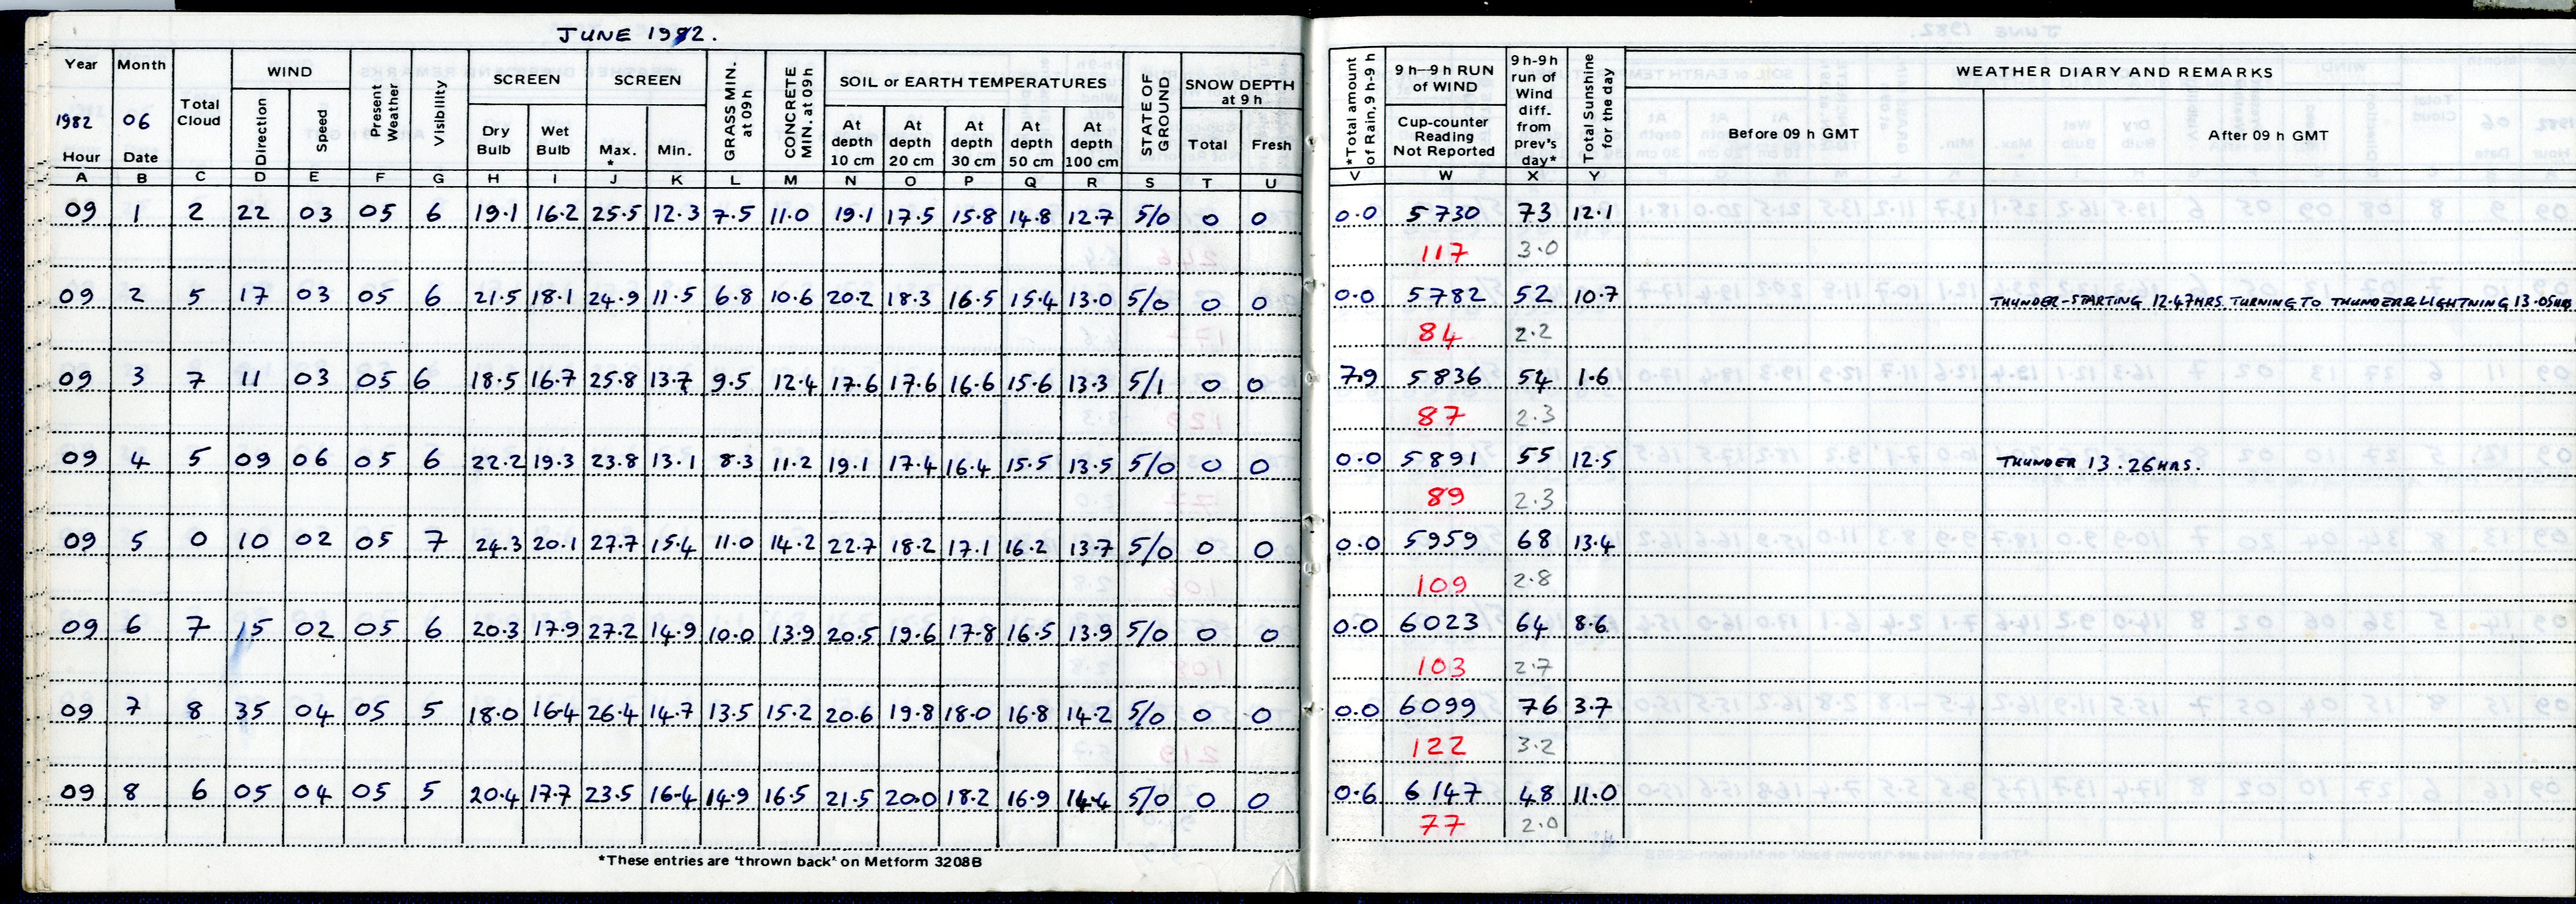 JUNE 1982.
Year Month Total Cloud WIND Present Weather Visibility SCREEN SCREEN GRASS MIN. at 09h CONCRETE MIN. at 09h SOIL or EARTH TEMPERATURES STATE OF GROUND SNOW DEPTH at 9 h *Total amount of Rain, 9 h-9 h 9 h–9 h RUN of WIND 9h-9h run of Wind diff. from prev's day* Total Sunshine for the day WEATHER DIARY AND REMARKS
1982 06 Direction Speed Dry Bulb Wet Bulb Max. * Min. At depth 10 cm At depth 20 cm At depth 30 cm At depth 50 cm At depth 100 cm Total Fresh Cup-counter Reading Not Reported Before 09 h GMT After 09 h GMT
Hour Date
A B C D E F G H I J K L M N O P Q R S T U V W X Y
09 1 2 22 03 05 6 19.1 16.2 25.5 12.3 7.5 11.0 19.1 17.5 15.8 14.8 12.7 5/0 0 0 0.0 5730 73 12.1
117 3.0
09 2 5 17 03 05 6 21.5 18.1 24.9 11.5 6.8 10.6 20.2 18.3 16.5 15.4 13.0 5/0 0 0 0.0 5782 52 10.7 THUNDER-STARTING 12.47HRS. TURNING TO THUNDER & LIGHTNING 13.05HRS
84 2.2
09 3 7 11 03 05 6 18.5 16.7 25.8 13.7 9.5 12.4 17.6 17.6 16.6 15.6 13.3 5/1 0 0 7.9 5836 54 1.6
87 2.3
09 4 5 09 06 05 6 22.2 19.3 23.8 13.1 8.3 11.2 19.1 17.4 16.4 15.5 13.5 5/0 0 0 0.0 5891 55 12.5 THUNDER 13.26HRS.
89 2.3
09 5 0 10 02 05 7 24.3 20.1 27.7 15.4 11.0 14.2 22.7 18.2 17.1 16.2 13.7 5/0 0 0 0.0 5959 68 13.4
109 2.8
09 6 7 15 02 05 6 20.3 17.9 27.2 14.9 10.0 13.9 20.5 19.6 17.8 16.5 13.9 5/0 0 0 0.0 6023 64 8.6
103 2.7
09 7 8 35 04 05 5 18.0 16.4 26.4 14.7 13.5 15.2 20.6 19.8 18.0 16.8 14.2 5/0 0 0 0.0 6099 76 3.7
122 3.2
09 8 6 05 04 05 5 20.4 17.7 23.5 16.4 14.9 16.5 21.5 20.0 18.2 16.9 14.4 5/0 0 0 0.6 6147 48 11.0
77 2.0
*These entries are 'thrown back' on Metform 3208B